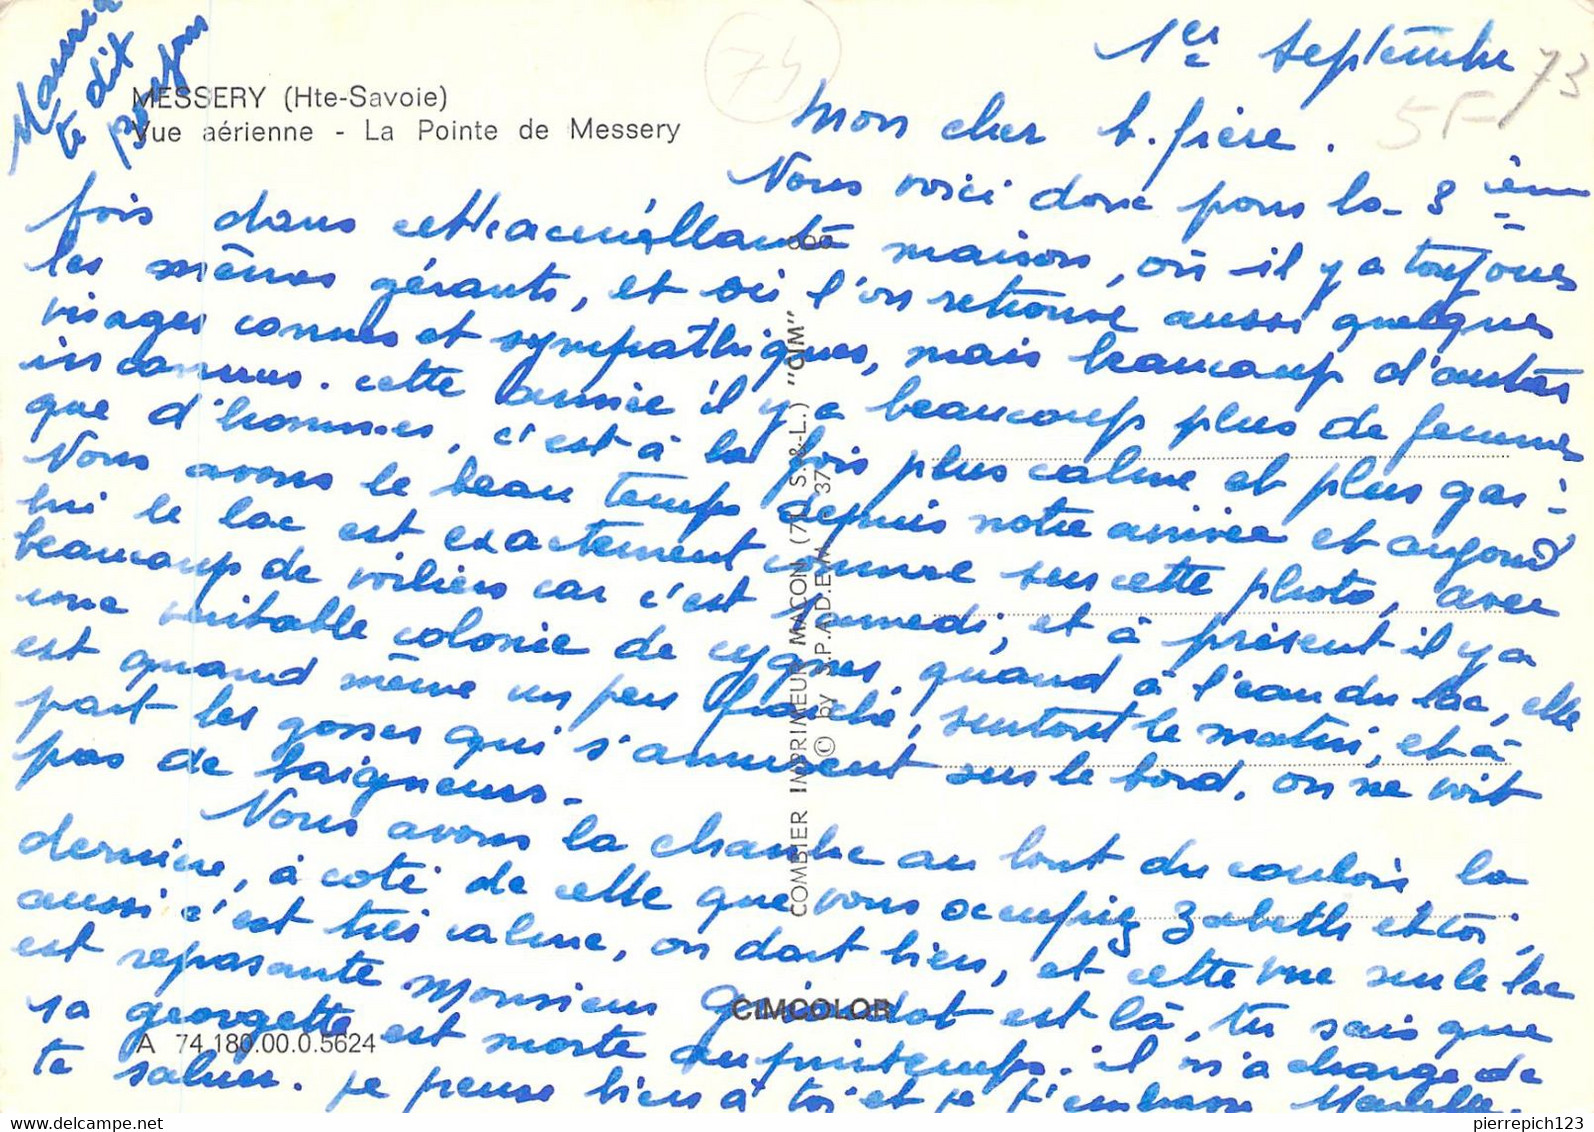 Maurice
te dit
bonjour
MESSERY (Hte-Savoie)
Vue aérienne - La Pointe de Messery
74
1er septembre
73
5F
Mon cher b. frère.
Nous voici donc pour la 3ième
fois dans cette accueillante maison, où il y a toujours
les mêmes gérants, et où l'on retrouve aussi quelques
visages connus et sympathiques, mais beaucoup d'autres
inconnus. cette année il y a beaucoup plus de femmes
que d'hommes, c'est à la fois plus calme et plus gai!
Nous avons le beau temps depuis notre arrivée et aujourd
hui le lac est exactement comme sur cette photo, avec
beaucoup de voiliers car c'est samedi, et à présent il y a
une véritable colonie de cygnes, quand à l'eau du lac, elle
est quand même un peu fraîche, surtout le matin, et à
part les gosses qui s'amusent sur le bord, on ne voit
pas de baigneurs.
Nous avons la chambre au bout du couloir la
dernière, à coté de celle que vous occupiez Zabeth et toi,
aussi c'est très calme, on dort bien, et cette vue sur le lac
est reposante Monsieur Guiondot est là, tu sais que
sa georgette est morte au printemps. il m'a chargé de
te saluer. je pense bien à toi et je t'embrasse
COMBIER IMPRIMEUR MACON (71 S.-&-L.) "CIM"
© by S.P.A.D.E.M. 37
CIMCOLOR
A 74.180.00.0.5624
pierrepich123